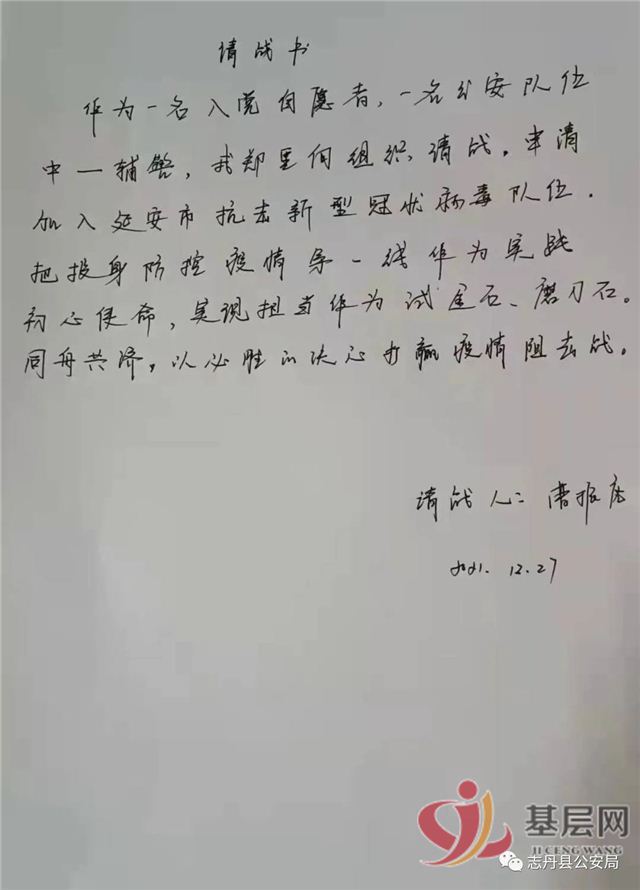 请战书
作为一名入党自愿者，一名公安队伍
中一辅警，我郑重向组织请战，申请
加入延安市抗击新型冠状病毒队伍.
把投身防控疫情第一线作为实践
初心使命，实现担当作为试金石、磨刀石。
同舟共济，以必胜的决心打赢疫情阻击战。
请战人：曹振
2021.12.27
基层网
JI CENG WANG
志丹县公安局